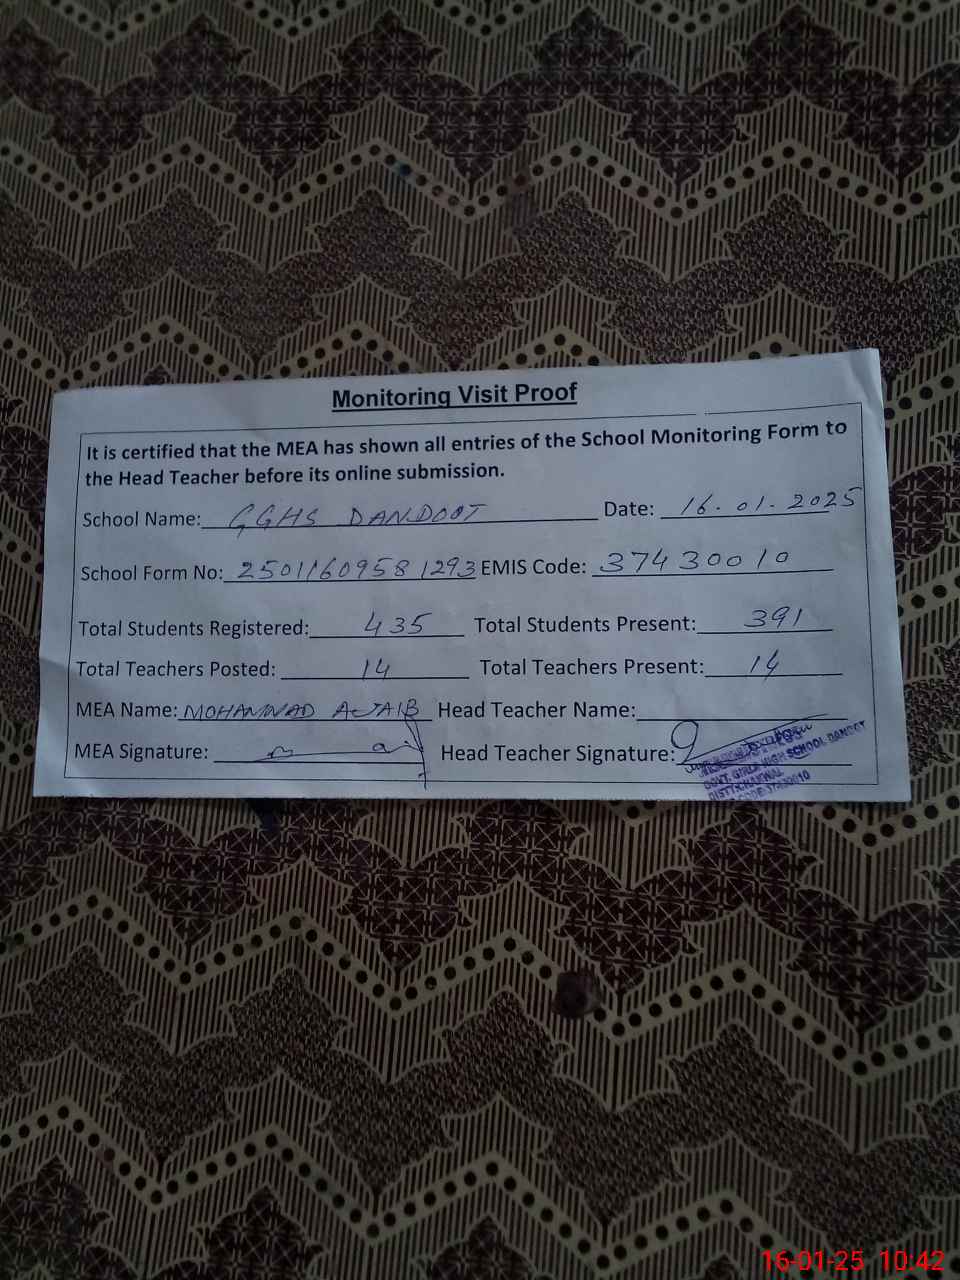 Monitoring Visit Proof
It is certified that the MEA has shown all entries of the School Monitoring Form to
the Head Teacher before its online submission.
School Name: GGHS DANDOOT Date: 16.01.2025
School Form No: 25011609581293 EMIS Code: 37430010
Total Students Registered: 435 Total Students Present: 391
Total Teachers Posted: 14 Total Teachers Present: 14
MEA Name: MOHAMMAD AJAIB Head Teacher Name:
MEA Signature: Head Teacher Signature:
GOVT. GIRLS HIGH SCHOOL DANDOT
DISTT. CHAKWAL
CODE: 37430010
16-01-25 10:42